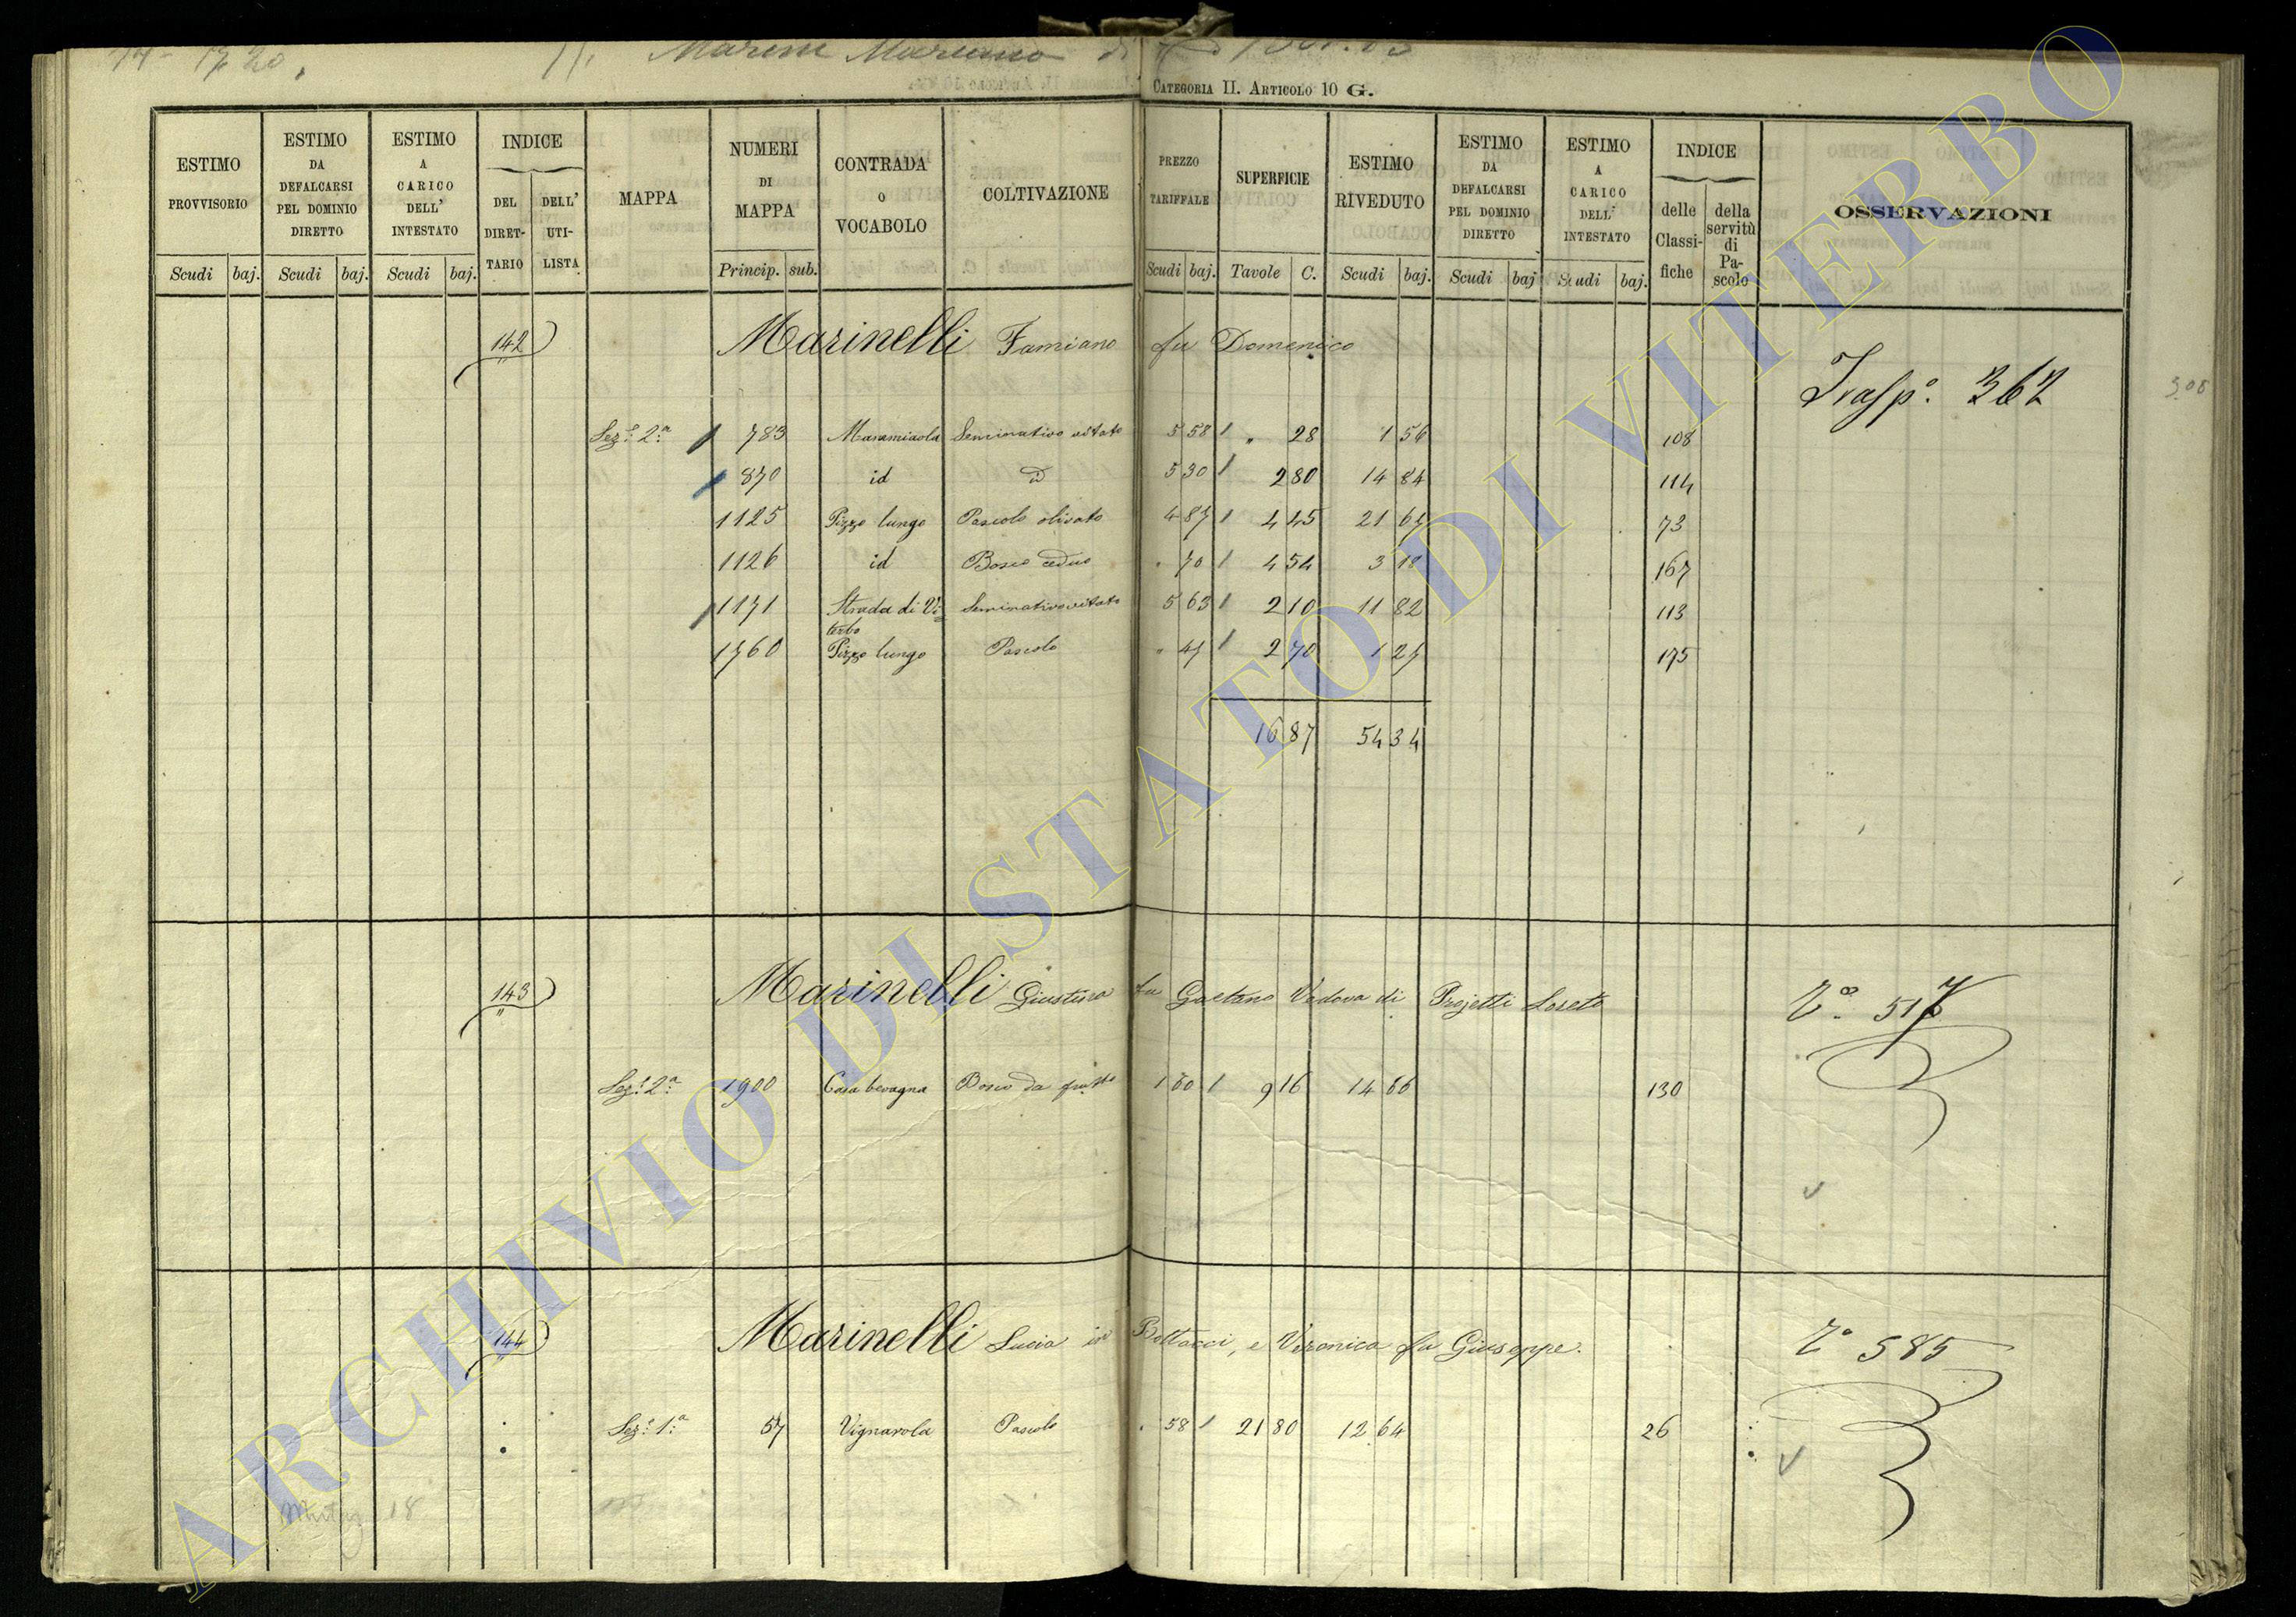 Marini Mariano di
CATEGORIA II. ARTICOLO 10 G.
ESTIMO PROVVISORIO Scudi baj.
ESTIMO DA DEFALCARSI PEL DOMINIO DIRETTO Scudi baj.
ESTIMO A CARICO DELL' INTESTATO Scudi baj.
INDICE DEL DIRET-TARIO DELL' UTI-LISTA
MAPPA
NUMERI DI MAPPA Princip. sub.
CONTRADA O VOCABOLO
COLTIVAZIONE
PREZZO TARIFFALE Scudi baj.
SUPERFICIE Tavole C.
ESTIMO RIVEDUTO Scudi baj.
ESTIMO DA DEFALCARSI PEL DOMINIO DIRETTO Scudi baj
ESTIMO A CARICO DELL' INTESTATO Scudi baj.
INDICE delle Classi-fiche della servitù di Pa-scolo
OSSERVAZIONI
142 Marinelli Famiano fu Domenico
Trasp.º 367
308
Sez.e 2.a 783 Maramiaola Seminativo vitato 5 58 " 28 1 56 108
870 id id 5 30 2 80 14 84 114
1125 Pizzo lungo Pascolo olivato 4 87 4 45 21 67 73
1126 id Bosco ceduo " 70 4 54 3 18 167
1171 Strada di Vi= Seminativo vitato 5 63 2 10 11 82 113
terbo
1760 Pizzo lungo Pascolo " 47 2 70 1 27 175
16 87 54 34
143 Marinelli Giustina fu Gaetano Vedova di Projetti Loreto
Sez.e 2.a 1900 Casa bevagna Bosco da frutto 1 60 9 16 14 66 130
144 Marinelli Lucia in Bottacci, e Veronica fu Giuseppe. Tº 585
Sez.e 1.a 57 Vignarola Pascolo " 58 21 80 12 64 26
ARCHIVIO DI STATO DI VITERBO